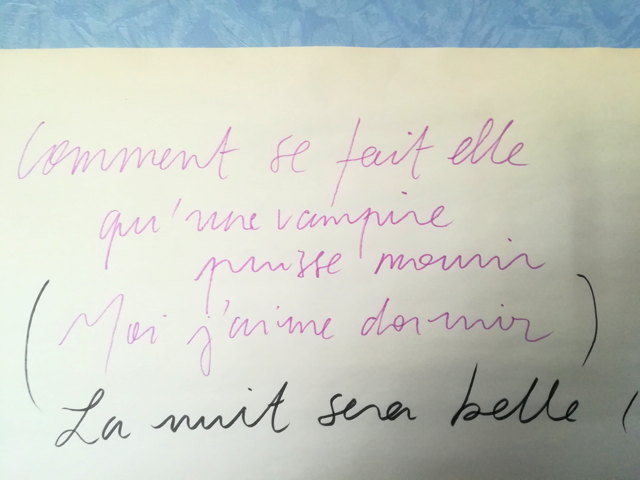 Comment se fait elle
qu'une vampire
puisse mourir
(Moi j'aime dormir)
La nuit sera belle (